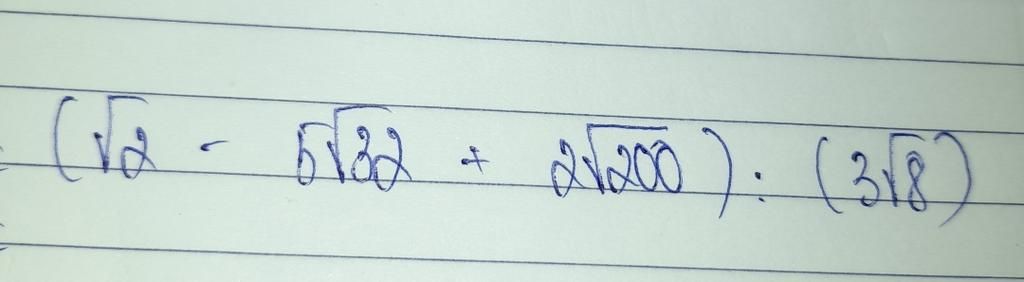 (√2 - 5√32 + 2√200) : (3√8)